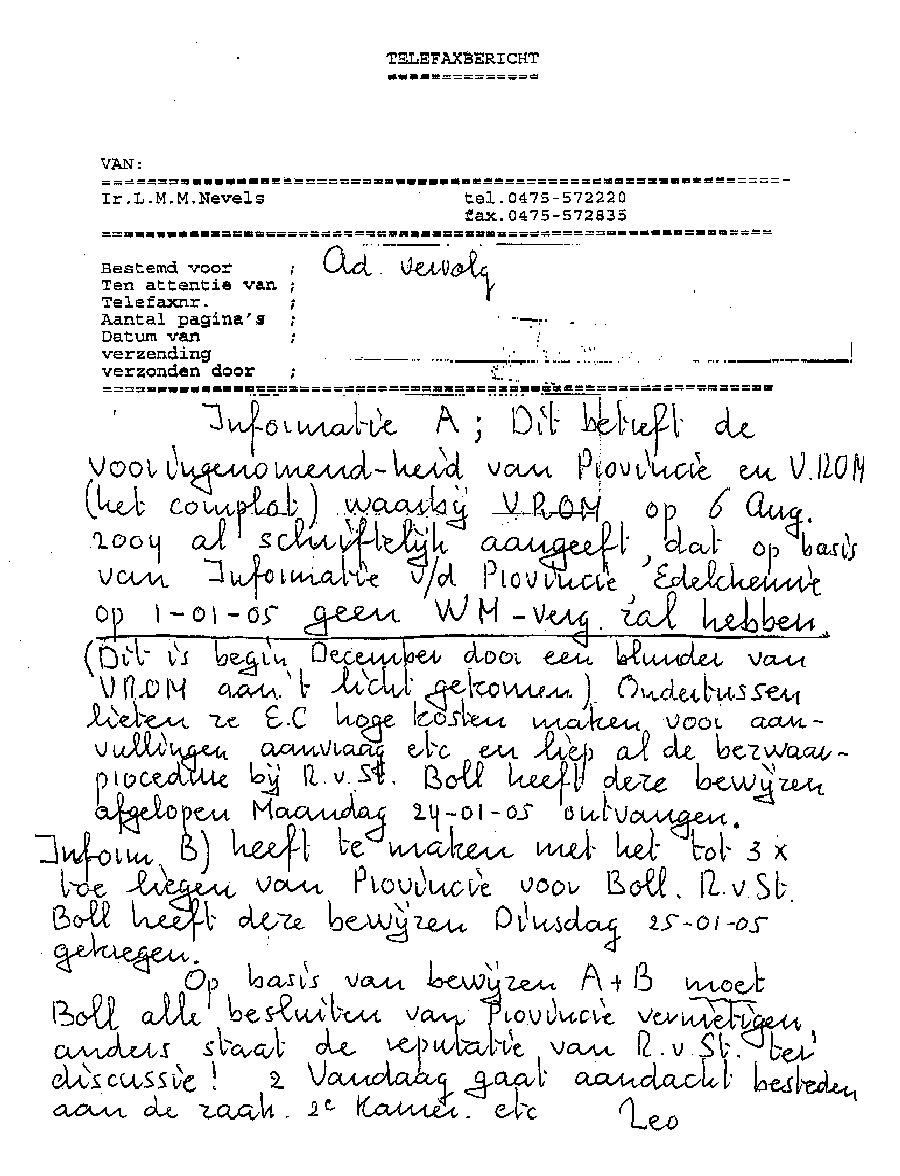 TELEFAXBERICHT
VAN:
Ir.L.M.M.Nevels tel.0475-572220
fax.0475-572835
Bestemd voor : Ad. vervolg
Ten attentie van :
Telefaxnr. :
Aantal pagina's :
Datum van :
verzending
verzonden door :
Informatie A ; Dit betreft de
vooringenomend-heid van Provincie en V.ROM
(het complot) waarbij VROM op 6 Aug.
2004 al schriftelijk aangeeft, dat op basis
van Informatie v/d Provincie, Edelchemie
op 1-01-05 geen WM-verg. zal hebben.
(Dit is begin December door een blunder van
VROM aan't licht gekomen) Ondertussen
lieten ze E.C hoge kosten maken voor aan-
vullingen aanvraag etc en liep al de bezwaar-
procedure bij R.v.St. Boll heeft deze bewijzen
afgelopen Maandag 24-01-05 ontvangen.
Inform. B) heeft te maken met het tot 3 x
toe liegen van Provincie voor Boll. R.v St.
Boll heeft deze bewijzen Dinsdag 25-01-05
gekregen.
Op basis van bewijzen A+B moet
Boll alle besluiten van Provincie vernietigen,
anders staat de reputatie van R.v St. ter
discussie! 2 Vandaag gaat aandacht besteden
aan de zaak. 2e Kamer. etc Leo